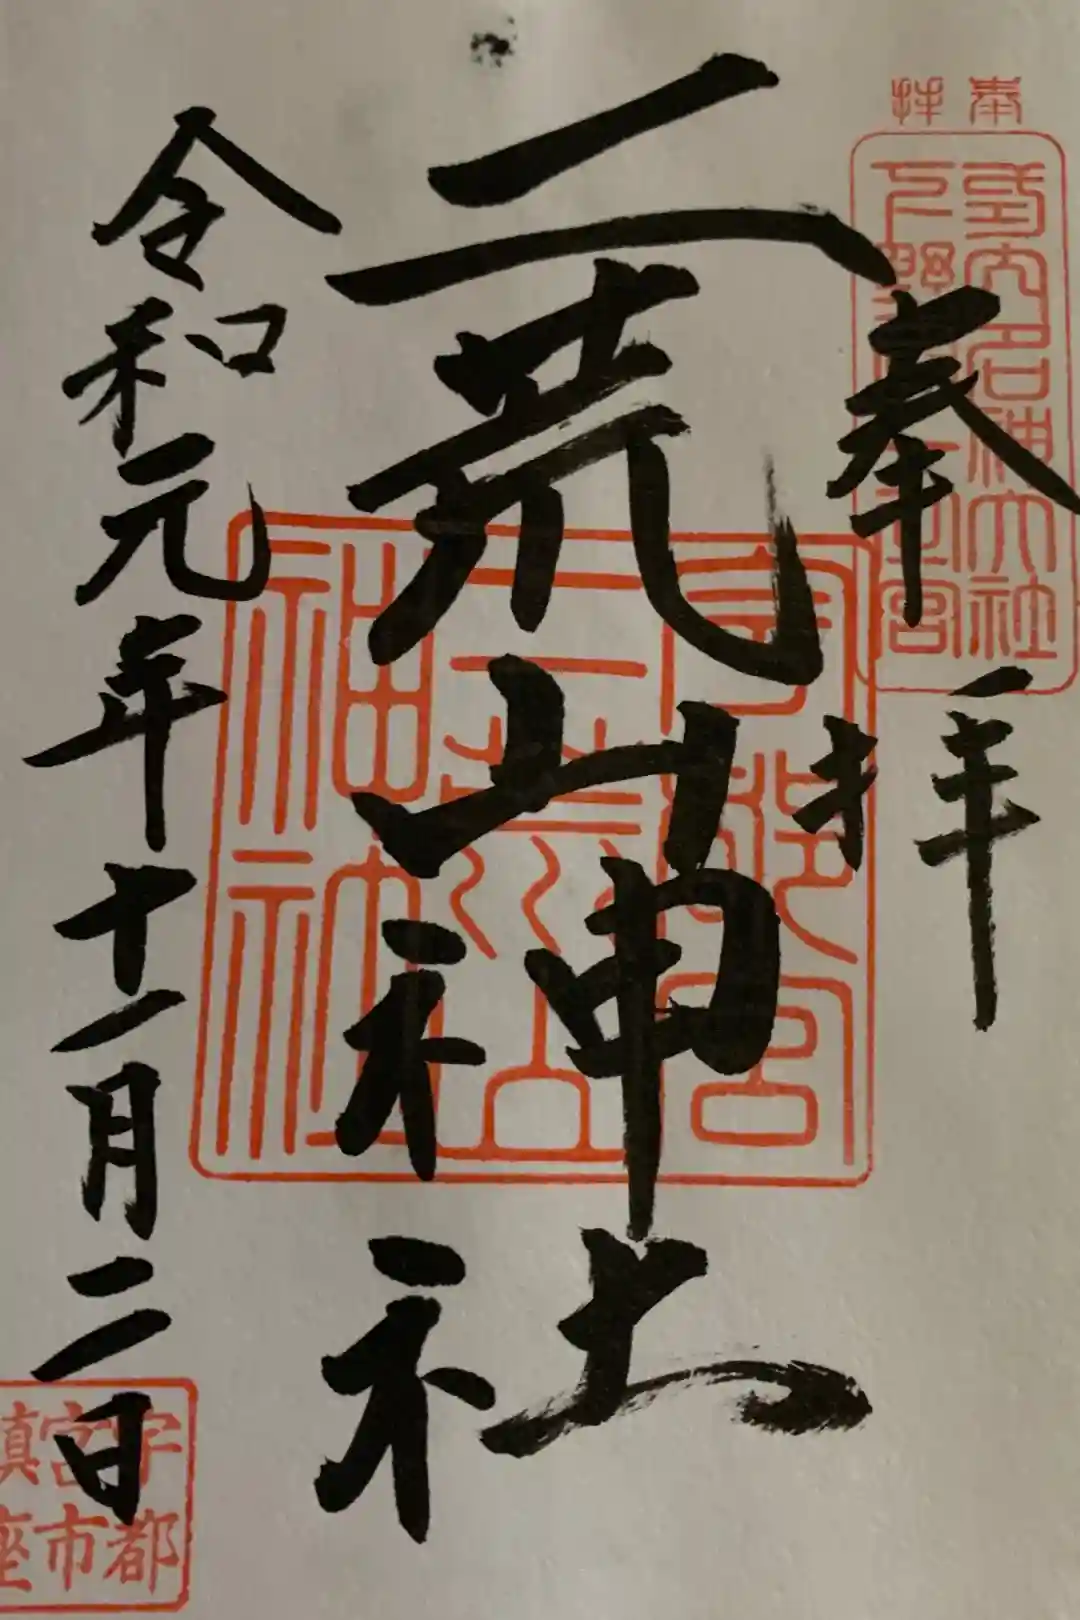 奉拝
式内名神大社
下野國一之宮
奉拝
二荒山神社
宇都宮
二荒山
神社
令和元年十一月二日
宇都
宮市
鎮座